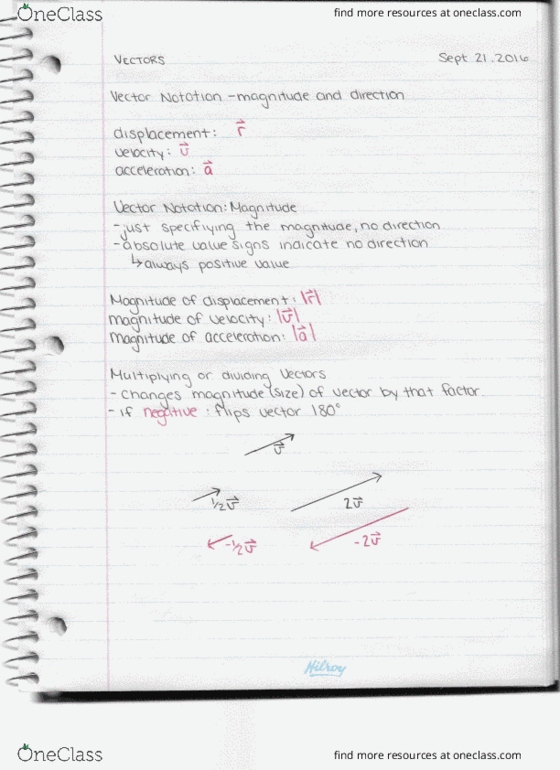 OneClass
find more resources at oneclass.com
VECTORS
Sept 21, 2016
Vector Notation - magnitude and direction
displacement: r⃗
velocity: v⃗
acceleration: a⃗
Vector Notation: Magnitude
- just specifiying the magnitude, no direction
- absolute value signs indicate no direction
↳ always positive value
Magnitude of displacement: |r⃗|
magnitude of velocity: |v⃗|
magnitude of acceleration: |a⃗|
Multiplying or dividing Vectors
- changes magnitude (size) of vector by that factor
- if negative: flips vector 180°
v⃗
1/2 v⃗
2v⃗
-1/2 v⃗
-2v⃗
Hilroy
OneClass
find more resources at oneclass.com